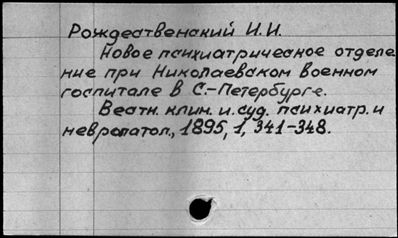 Рождественский И.И.
Новое психиатрическое отделе
ние при Николаевском военном
госпитале в С.-Петербурге.
Вестн. клин. и суд. психиатр. и
невропатол., 1895, 1, 341-348.